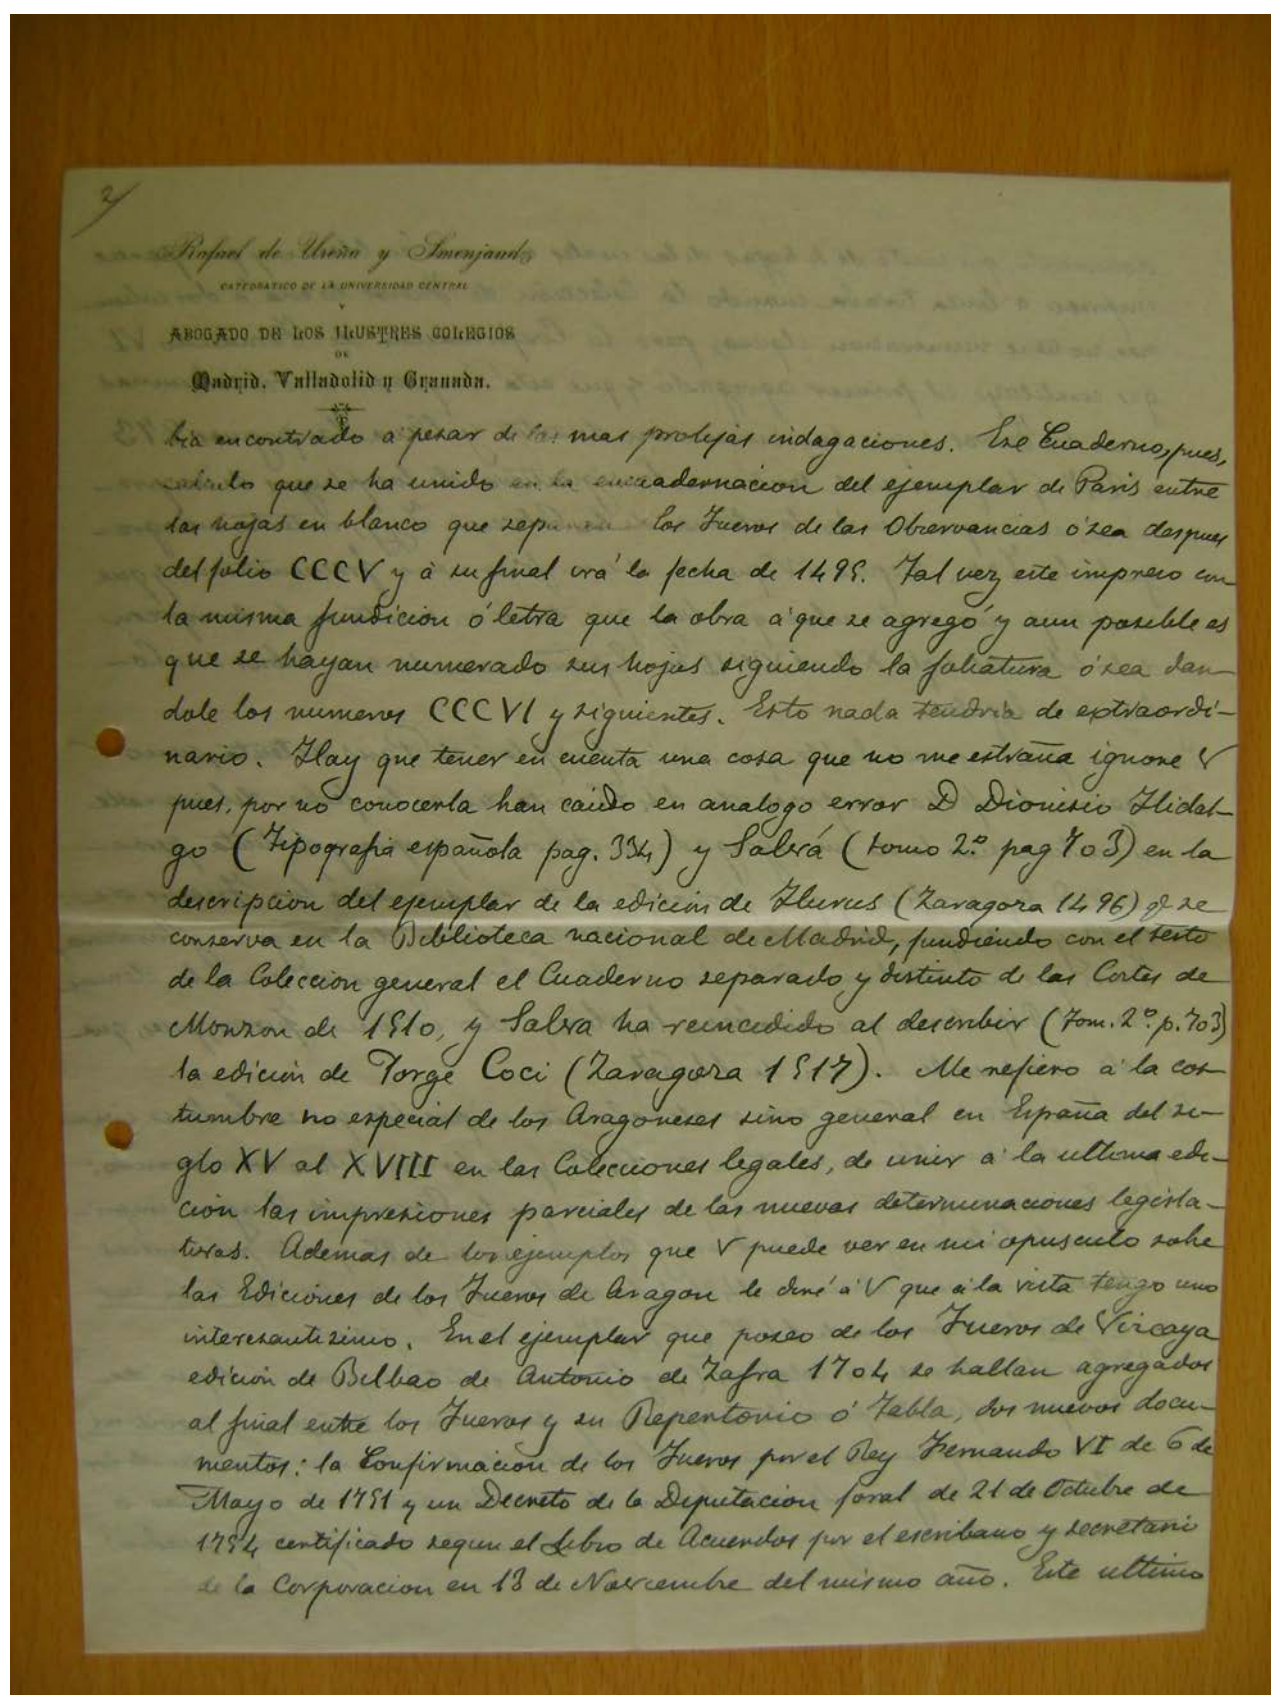 2/
Rafael de Ureña y Smenjaud
CATEDRÁTICO DE LA UNIVERSIDAD CENTRAL
Y
ABOGADO DE LOS ILUSTRES COLEGIOS
DE
Madrid, Valladolid y Granada.
bia encontrado a pesar de las mas prolijas indagaciones. Ese Cuaderno, pues,
calculo que se ha unido en la encuadernacion del ejemplar de Paris entre
las hojas en blanco que separan los Fueros de las Observancias ó sea despues
del folio CCCV y á su final irá la fecha de 1495. Tal vez este impreso con
la misma fundicion ó letra que la obra á que se agregó y aun posible es
que se hayan numerado sus hojas siguiendo la foliatura ó sea dan-
dole los numeros CCCVI y siguientes. Esto nada tendria de extraordi-
nario. Hay que tener en cuenta una cosa que no me estraña ignore V
pues, por no conocerla han caido en analogo error D Dionisio Hidal-
go (Tipografia española pag. 334) y Salvá (tomo 2.º pag 703) en la
descripcion del ejemplar de la edición de Hurus (Zaragoza 1496) q se
conserva en la Biblioteca nacional de Madrid, fundiendo con el testo
de la Coleccion general el Cuaderno separado y distinto de las Cortes de
Monzon de 1510, y Salva ha reincidido al describir (Tom. 2.º p. 703)
la edición de Jorge Coci (Zaragoza 1517). Me refiero á la cos-
tumbre no especial de los Aragoneses sino general en España del si-
glo XV al XVIII en las Colecciones legales, de unir á la ultima edi-
ción las impresiones parciales de las nuevas determinaciones legisla-
tivas. Ademas de los ejemplos que V puede ver en mi opusculo sobre
las Ediciones de los Fueros de Aragon le diré á V que á la vista tengo uno
interesantisimo. En el ejemplar que poseo de los Fueros de Vizcaya
edición de Bilbao de Antonio de Zafra 1704 se hallan agregados
al final entre los Fueros y su Repertorio ó Tabla, dos nuevos docu-
mentos: la Confirmación de los Fueros por el Rey Fernando VI de 6 de
Mayo de 1751 y un Decreto de la Deputacion foral de 21 de Octubre de
1754 certificado segun el Libro de Acuerdos por el escribano y secretario
de la Corporacion en 13 de Noviembre del mismo año. Este ultimo